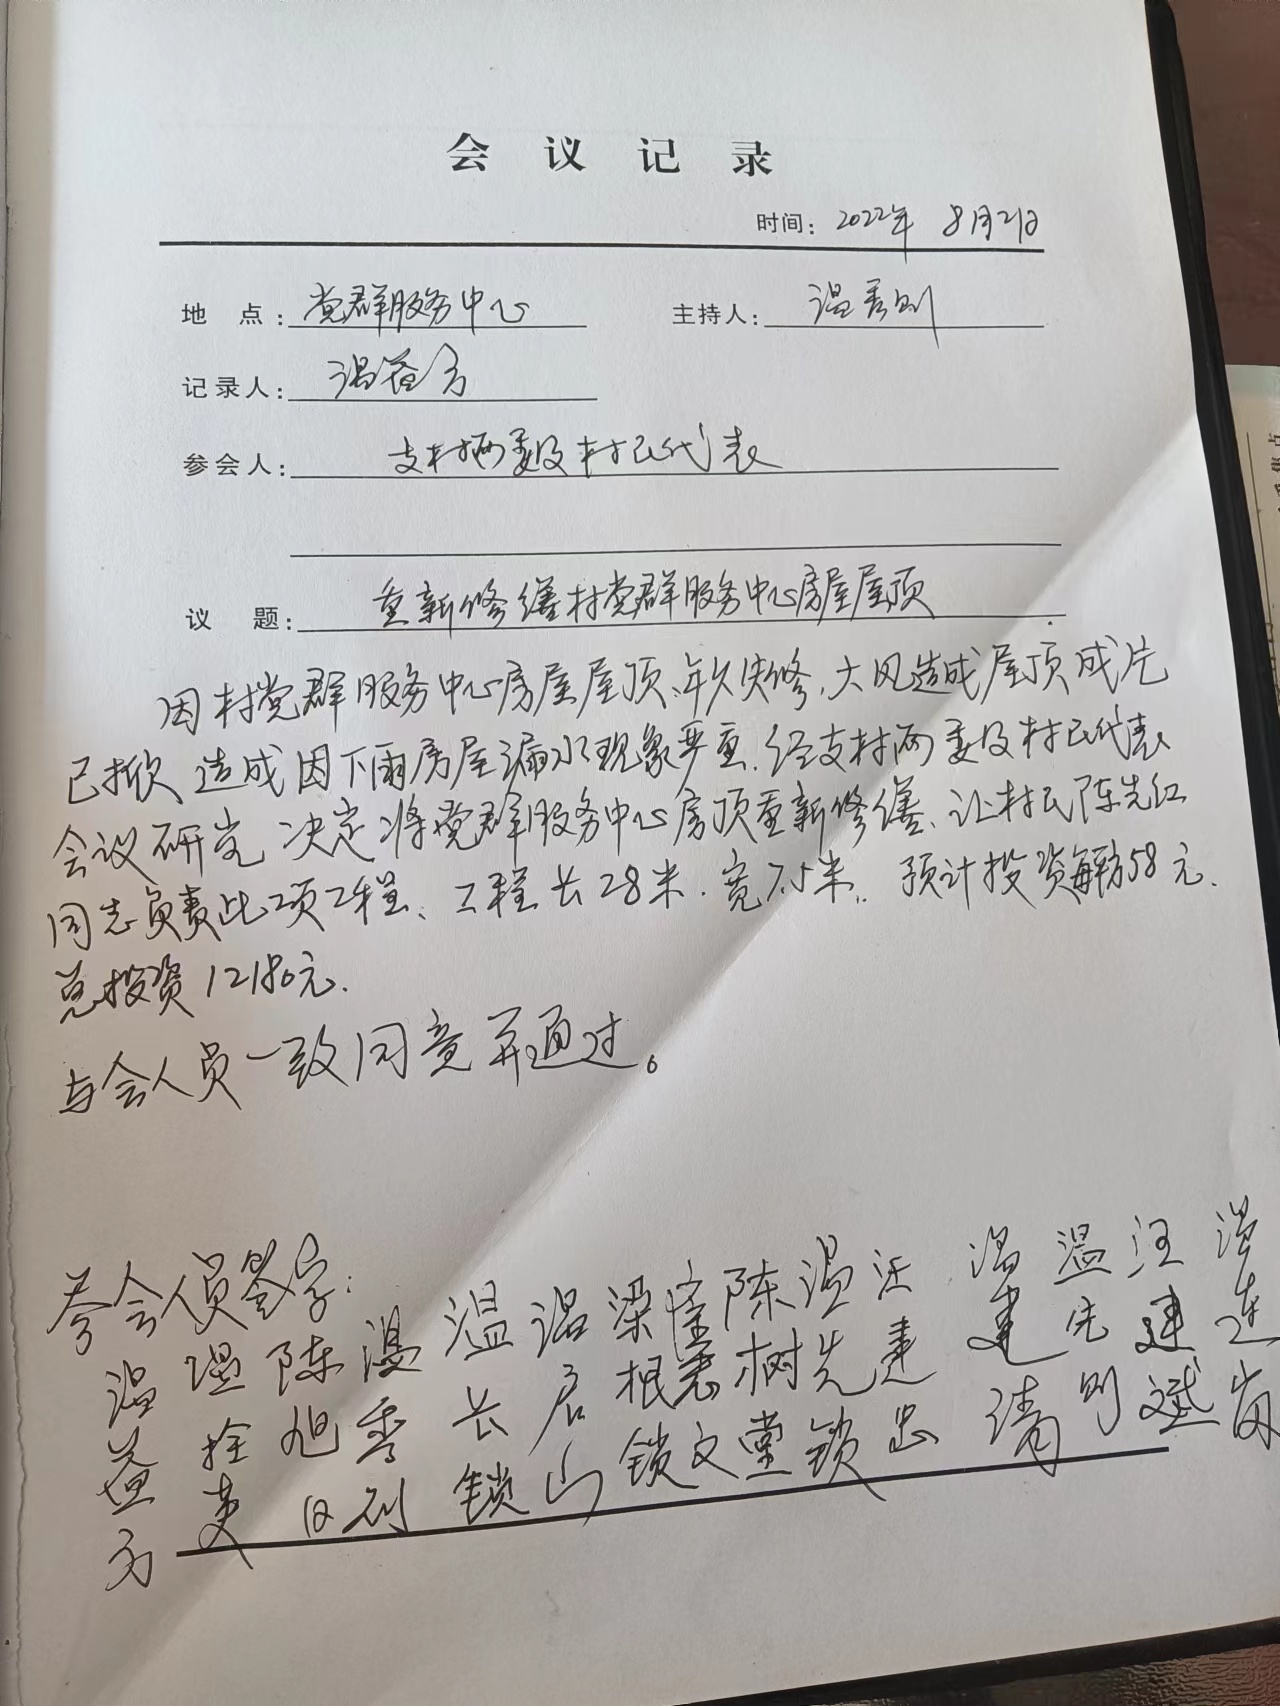 会议记录
时间：2022年 8月2日
地点：党群服务中心 主持人：温秀则
记录人：温益方
参会人：支村两委及村民代表
议题：重新修缮村党群服务中心房屋屋顶
因村党群服务中心房屋屋顶、年久失修，大风造成屋顶成片
已掀 造成因下雨房屋漏水现象严重．经支村两委及村民代表
会议研究 决定将党群服务中心房顶重新修缮、让村民陈先红
同志负责此项工程、工程长28米．宽7.5米．预计投资每方58元．
总投资12180元．
与会人员一致同意并通过。
参会人员签字：
温益方
温拴英
陈旭日
温秀则
温长锁
温启山
梁根锁
陈树堂
温先锁
汪建忠
温建清
温先则
汪建斌
温连岗